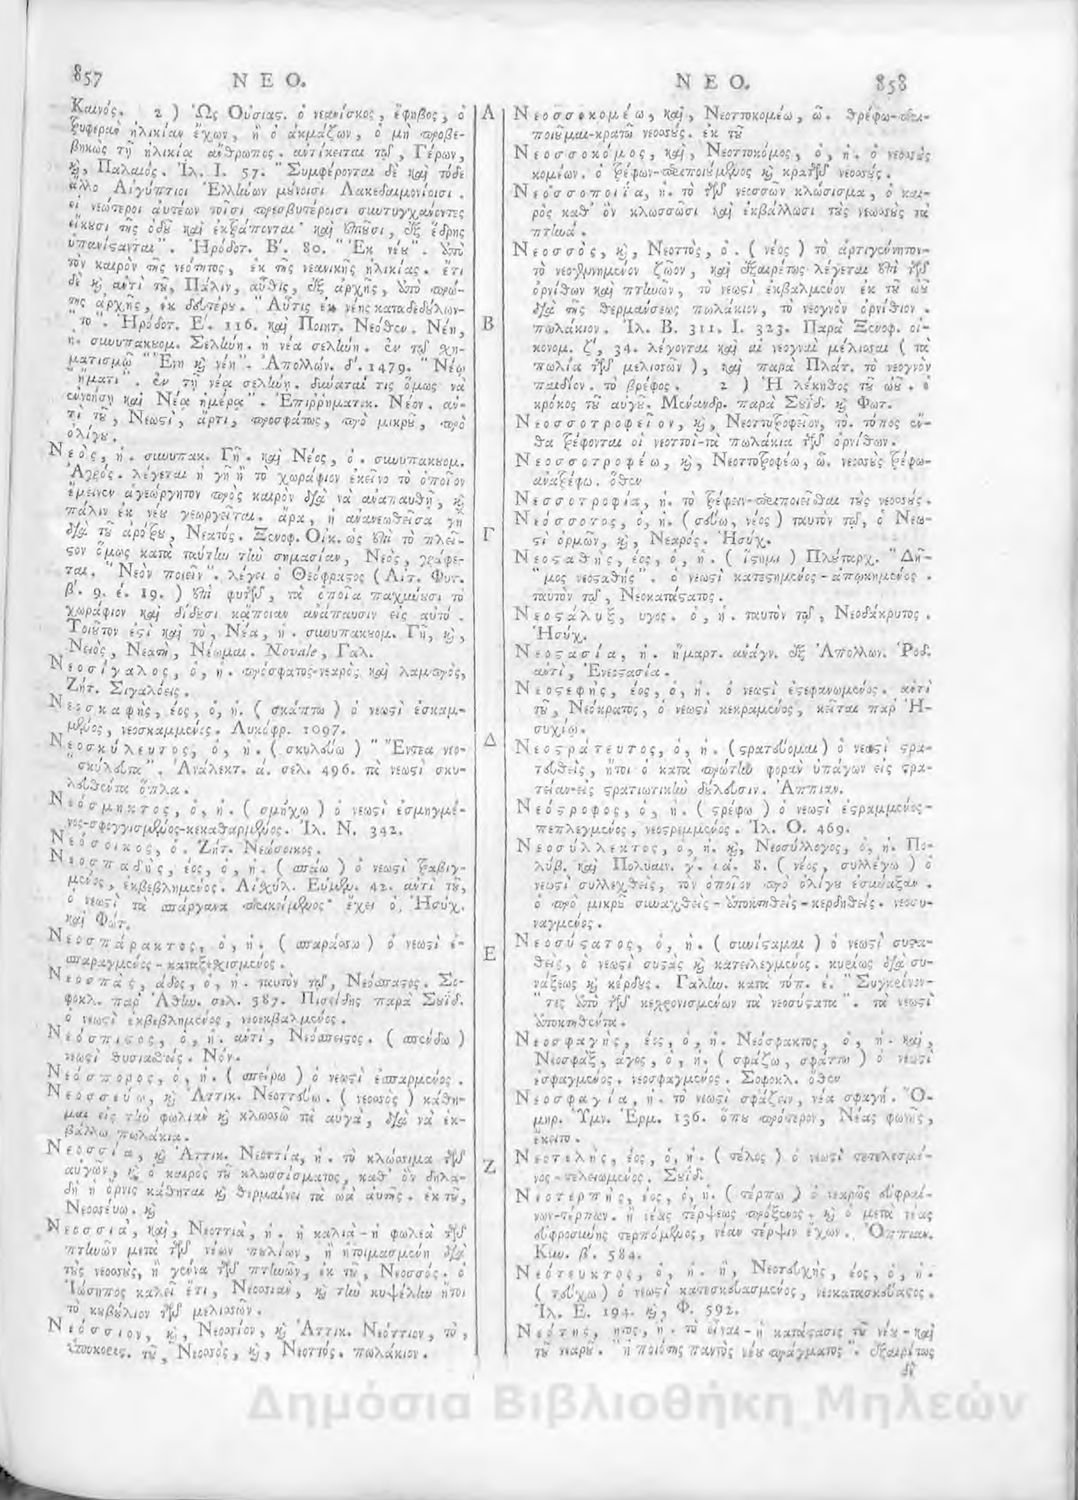 857 ΝΕΟ.
Καινός. 2 ) Ὡς Οὐσιας. ὁ νεανίσκος, ἔφηβος, ὁ
τρυφερὰν ἡλικίαν ἔχων, ἢ ὁ ἀκμάζων, ὁ μὴ προβε-
βηκὼς τῇ ἡλικίᾳ ἄνθρωπος. ἀντίκειται τῷ, Γέρων,
καὶ, Παλαιός. Ἰλ. Ι. 57. "Συμφέρονται δὲ καὶ τόδε
ἄλλο Αἰγύπτιοι Ἑλλήνων μούνοισι Λακεδαιμονίοισι.
οἱ νεώτεροι αὐτέων τοῖσι πρεσβυτέροισι συντυγχάνοντες
εἴκουσι τῆς ὁδοῦ καὶ ἐκτράπονται· καὶ ἐπιοῦσι, ἐξ ἕδρης
ὑπανίστανται". Ἡρόδοτ. Β΄. 80. "Ἐκ νέου". ἀπὸ
τὸν καιρὸν τῆς νεότητος, ἐκ τῆς νεανικῆς ἡλικίας. ἔτι
δὲ καὶ ἀντὶ τοῦ, Πάλιν, αὖθις, ἐξ ἀρχῆς, ἀπὸ πρώ-
της ἀρχῆς, ἐκ δευτέρου. "Αὖτις ἐκ νέης καταδεδούλων-
"το". Ἡρόδοτ. Ε΄. 116. καὶ Ποιητ. Νεόθεν. Νέη,
ἡ. συνυπακουομ. Σελήνη. ἡ νέα σελήνη. ἐν τῷ χη-
ματισμῷ "Ἕνη καὶ νέη". Ἀπολλων. δ΄. 1479. "Νέῳ
ἤματι". ἐν τῇ νέᾳ σελήνῃ. δύναταί τις ὅμως νὰ
ἐννοήσῃ καὶ Νέᾳ ἡμέρᾳ". Ἐπιρρηματικ. Νέον. ἀν-
τὶ τοῦ, Νεωστὶ, ἄρτι, προσφάτως, πρὸ μικροῦ, πρὸ
ὀλίγου.
Νεός, ἡ. συνυπακ. Γῆ. καὶ Νεός, ὁ. συνυπακουομ.
Ἀγρός. λέγεται ἡ γῆ ἢ τὸ χωράφιον ἐκεῖνο τὸ ὁποῖον
ἔμεινεν ἀγεώργητον πρὸς καιρὸν διὰ νὰ ἀναπαυθῇ, καὶ
πάλιν ἐκ νέου γεωργεῖται. ἄρα, ἡ ἀνανεωθεῖσα γῆ
διὰ τοῦ ἀρότρου, Νεατός. Ξενοφ. Οἰκ. ὡς ἐπὶ τὸ πλεῖ-
στον ὅμως κατὰ ταύτην τὴν σημασίαν, Νεός, γράφε-
ται. "Νεὸν ποιεῖν". λέγει ὁ Θεόφραστος ( Αἰτ. Φυτ.
β΄. 9. ε. 19. ) ἐπὶ φυτῶν, τὰ ὁποῖα παχμώνουσι τὸ
χωράφιον καὶ δίδουσι κάποιαν ἀνάπαυσιν εἰς αὐτό.
Τοιοῦτον ἐστὶ καὶ τὸ, Νέα, ἡ. συνυπακουομ. Γῆ, καὶ,
Νειός, Νεατὴ, Νέωμαι. Novale, Γαλ.
Νεοσίγαλος, ὁ, ἡ. πρόσφατος-νεαρὸς καὶ λαμπρός,
Ζήτ. Σιγαλόεις.
Νεοσκαφής, έος, ὁ, ἡ. ( σκάπτω ) ὁ νεωστὶ ἐσκαμ-
μένος, νεοσκαμμένος. Λυκόφρ. 1097.
Νεοσκύλευτος, ὁ, ἡ. ( σκυλεύω ) "Ἔντεα νεο-
"σκύλευτα". Ἀνάλεκτ. ά. σελ. 496. τὰ νεωστὶ σκυ-
λευθέντα ὅπλα.
Νεόσμηκτος, ὁ, ἡ. ( σμήχω ) ὁ νεωστὶ ἐσμηγμέ-
νος-σφογγισμένος-κεκαθαρμένος. Ἰλ. Ν. 342.
Νεόσοικος, ὁ. Ζήτ. Νεώσοικος.
Νεοσπαδής, έος, ὁ, ἡ. ( σπάω ) ὁ νεωστὶ τραβιγ-
μένος, ἐκβεβλημένος. Αἰσχύλ. Εὐμεν. 42. ἀντὶ τοῦ,
ὁ νεωστὶ τὰ σπάργανα περικείμενος· ἔχει ὁ, Ἡσύχ.
καὶ Φώτ.
Νεοσπάρακτος, ὁ, ἡ. ( σπαράσσω ) ὁ νεωστὶ ἐ-
σπαραγμένος - καταξεσχισμένος.
Νεοσπάς, άδος, ὁ, ἡ. ταυτὸν τῷ, Νεόσπαστος. Σο-
φοκλ. παρ' Ἀθήν. σελ. 587. Πισίδης παρὰ Σουΐδ.
ὁ νεωστὶ ἐκβεβλημένος, νεοεκβαλμένος.
Νεόσπιστος, ὁ, ἡ. ἀντὶ, Νεόσπειστος. ( σπένδω )
νεωστὶ θυσιασθείς. Νόν.
Νεόσπορος, ὁ, ἡ. ( σπείρω ) ὁ νεωστὶ ἐσπαρμένος.
Νεοσσεύω, καὶ Ἀττικ. Νεοττεύω. ( νεοσσὸς ) κάθη-
μαι εἰς τὴν φωλιὰν καὶ κλωσσῶ τὰ αὐγὰ, διὰ νὰ ἐκ-
βάλλω πωλάκια.
Νεοσσία, καὶ Ἀττικ. Νεοττία, ἡ. τὸ κλώσσιμα τῶν
αὐγῶν, καὶ ὁ καιρὸς τοῦ κλωσσίσματος, καθ' ὃν δηλα-
δὴ ἡ ὄρνις κάθηται καὶ θερμαίνει τὰ ὠὰ αὑτῆς. ἐκ τοῦ,
Νεοσσεύω. καὶ
Νεοσσιά, καὶ, Νεοττιὰ, ἡ. ἡ καλιὰ-ἡ φωλεὰ τῶν
πτηνῶν μετὰ τῶν νέων πουλίων, ἢ ἡτοιμασμένη διὰ
τοὺς νεοσσοὺς, ἢ γέννα τῶν πτηνῶν, ἐκ τοῦ, Νεοσσός. ὁ
Ἰώσηπος καλεῖ ἔτι, Νεοσσιὰν, καὶ τὴν κυψέλην ἤτοι
τὸ κουβούλιον τῶν μελισσῶν.
Νεόσσιον, καὶ, Νεοσσίον, καὶ Ἀττικ. Νεόττιον, τὸ,
ὑποκορις. τοῦ, Νεοσσὸς, καὶ, Νεοττός. πωλάκιον.
Α
Β
Γ
Δ
Ε
Ζ
ΝΕΟ. 858
Νεοσσοκομέω, καὶ, Νεοττοκομέω, ῶ. θρέφω-περι-
ποιοῦμαι-κρατῶ νεοσσούς. ἐκ τοῦ
Νεοσσοκόμος, καὶ, Νεοττοκόμος, ὁ, ἡ. ὁ νεοσσοὺς
κομέων. ὁ τρέφων-περιποιούμενος καὶ κρατῶν νεοσσούς.
Νεοσσοποιΐα, ἡ. τὸ τῶν νεοσσῶν κλώσισμα, ὁ και-
ρὸς καθ' ὃν κλωσσῶσι καὶ ἐκβάλλωσι τοὺς νεοσσοὺς τὰ
πτηνά.
Νεοσσός, καὶ, Νεοττὸς, ὁ. ( νέος ) τὸ ἀρτιγέννητον-
τὸ νεογεννημένον ζῶον, καὶ ἐξαιρέτως λέγεται ἐπὶ τῶν
ὀρνίθων καὶ πτηνῶν, τὸ νεωστὶ ἐκβαλμένον ἐκ τοῦ ὠοῦ
διὰ τῆς θερμάνσεως πωλάκιον, τὸ νεογνὸν ὀρνίθιον.
πωλάκιον. Ἰλ. Β. 311. Ι. 323. Παρὰ Ξενοφ. οἰ-
κονομ. ζ΄, 34. λέγονται καὶ αἱ νεογναὶ μέλισσαι ( τὰ
πωλία τῶν μελισσῶν ), καὶ παρὰ Πλάτ. τὸ νεογνὸν
παιδίον. τὸ βρέφος. 2 ) Ἡ λέκηθος τοῦ ὠοῦ. ὁ
κρόκος τοῦ αὐγοῦ. Μένανδρ. παρὰ Σουΐδ. καὶ Φωτ.
Νεοσσοτροφεῖον, καὶ, Νεοττοτροφεῖον, τὸ. τόπος ἔν-
θα τρέφονται οἱ νεοττοὶ-τὰ πωλάκια τῶν ὀρνίθων.
Νεοσσοτροφέω, καὶ, Νεοττοτροφέω, ῶ. νεοσσοὺς τρέφω-
ἀνατρέφω. ὅθεν
Νεσσοτροφία, ἡ. τὸ τρέφειν-περιποιεῖσθαι τοὺς νεοσσούς.
Νεόσσοτος, ὁ, ἡ. ( σεύω, νέος ) ταυτὸν τῷ, ὁ Νεω-
στὶ ὁρμῶν, καὶ, Νεαρός. Ἡσύχ.
Νεοσταθής, έος, ὁ, ἡ. ( ἵστημι ) Πλούταρχ. "Δῆ-
"μος νεοσταθής". ὁ νεωστὶ κατεστημένος-ἀπῳκημένος.
ταυτὸν τῷ, Νεοκατάστατος.
Νεοστάλυξ, υγος. ὁ, ἡ. ταυτὸν τῷ, Νεοδάκρυτος.
Ἡσύχ.
Νεοστασία, ἡ. ἡμαρτ. ἀνάγν. ἐξ Ἀπολλων. Ῥοδ.
ἀντὶ, Ἐνεοστασία.
Νεοστεφής, έος, ὁ, ἡ. ὁ νεωστὶ ἐστεφανωμένος. ἀντὶ
τοῦ, Νεόκρατος, ὁ νεωστὶ κεκραμένος, κεῖται παρ' Ἡ-
συχίῳ.
Νεοστράτευτος, ὁ, ἡ. ( στρατεύομαι ) ὁ νεωστὶ στρα-
τευθείς, ἤτοι ὁ κατὰ πρώτην φορὰν ὑπάγων εἰς στρα-
τείαν-εἰς στρατιωτικὴν δούλευσιν. Ἀππιαν.
Νεόστροφος, ὁ, ἡ. ( στρέφω ) ὁ νεωστὶ ἐστραμμένος-
πεπλεγμένος, νεοστρεμμένος. Ἰλ. Ο. 469.
Νεοσύλλεκτος, ὁ, ἡ. καὶ, Νεοσύλλογος, ὁ, ἡ. Πο-
λύβ. καὶ Πολυαιν. γ΄. ιά. 8. ( νέος, συλλέγω ) ὁ
νεωστὶ συλλεχθείς, τὸν ὁποῖον πρὸ ὀλίγου ἐσύναξαν.
ὁ πρὸ μικροῦ συναχθεὶς-ἀποκτηθεὶς-κερδηθείς. νεοσυ-
ναγμένος.
Νεοσύστατος, ὁ, ἡ. ( συνίσταμαι ) ὁ νεωστὶ συστα-
θεὶς, ὁ νεωστὶ συστὰς καὶ κατειλεγμένος. κυρίως διὰ συ-
νάξεως καὶ κέρδους. Γαλην. κατὰ τόπ. έ. "Συγκρίνον-
"τες ἀπὸ τῶν κεχρονισμένων τὰ νεοσύστατα". τὰ νεωστὶ
ἀποκτηθέντα.
Νεοσφαγής, έος, ὁ, ἡ. Νεόσφακτος, ὁ, ἡ. καὶ,
Νεοσφάξ, άγος, ὁ, ἡ. ( σφάζω, σφάττω ) ὁ νεωστὶ
ἐσφαγμένος. νεοσφαγμένος. Σοφοκλ. ὅθεν
Νεοσφαγία, ἡ. τὸ νεωστὶ σφάζειν, νέα σφαγή. Ὁ-
μηρ. Ὕμν. Ἑρμ. 136. ὅπου πρότερον, Νέας φωνῆς,
ἔκειτο.
Νεοτελής, έος, ὁ, ἡ. ( τέλος ) ὁ νεωστὶ τετελεσμέ-
νος-τελειωμένος. Σουΐδ.
Νεοτερπής, έος, ὁ, ἡ. ( τέρπω ) ὁ νεαρῶς εὐφραί-
νων-τέρπων. ἢ νέας τέρψεως πρόξενος. καὶ ὁ μετὰ νέας
εὐφροσύνης τερπόμενος, νέαν τέρψιν ἔχων. Ὀππιαν.
Κυν. β΄. 584.
Νεότευκτος, ὁ, ἡ. ἢ, Νεοτευχής, έος, ὁ, ἡ.
( τεύχω ) ὁ νεωστὶ κατεσκευασμένος, νεοκατασκεύαστος.
Ἰλ. Ε. 194. καὶ, Φ. 592.
Νεότης, ητος, ἡ. τὸ εἶναι-ἡ κατάστασις τοῦ νέου-καὶ
τοῦ νεαροῦ. "ἡ ποιότης παντὸς νέου πράγματος". ἐξαιρέτως
δὲ
Δημόσια Βιβλιοθήκη Μηλεών